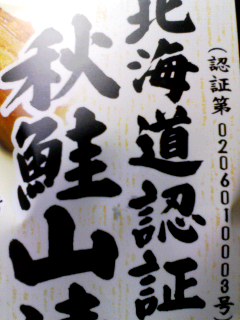 (認証第0206010003号)
北海道認証
秋鮭山漬